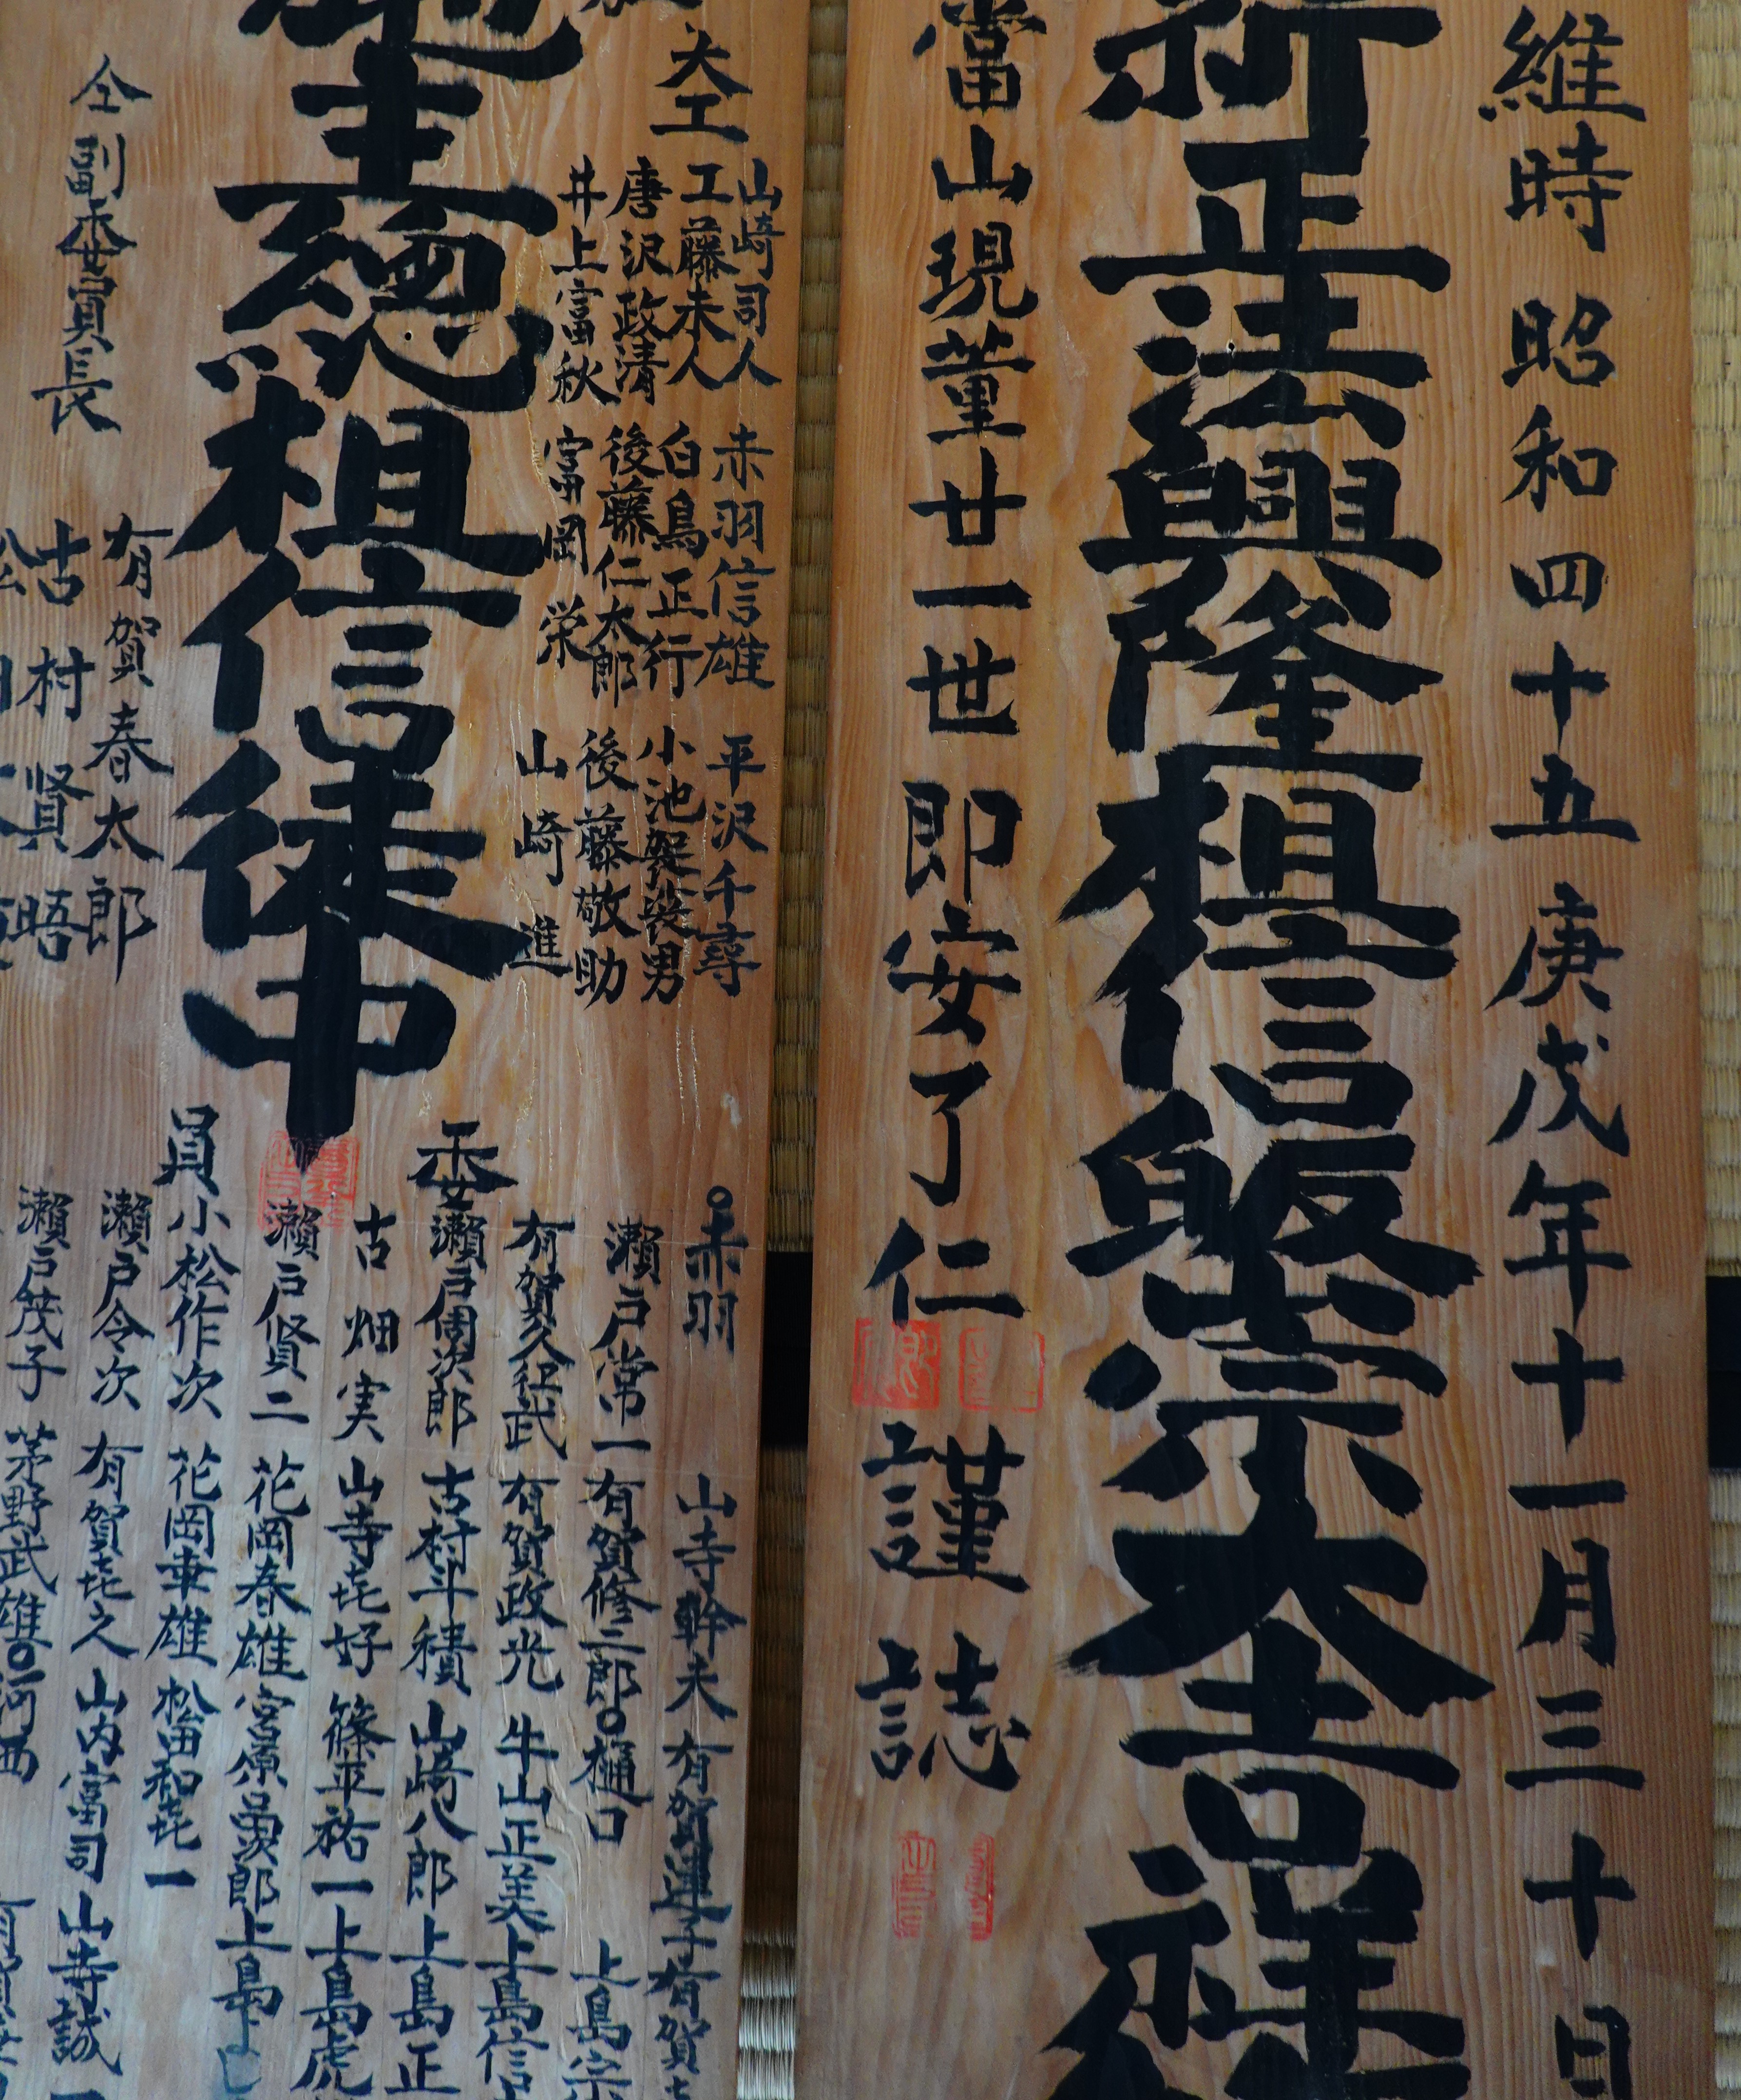 維時昭和四十五庚戌年十一月三十日
祈正法興隆檀信皈崇大吉祥
當山現董廿一世即安了仁謹誌
大工
山崎司人 赤羽信雄 平沢千尋
工藤未人 白鳥正行 小池袈裟男
唐沢政清 後藤仁太郎 後藤敬助
井上富秋 富岡栄 山崎進
主総檀信徒中
委員
赤羽 山寺幹夫 有賀運子 有賀
瀬戸常一 有賀修二郎 樋口 上島宗
有賀久征武 有賀政光 牛山正美 上島信
瀬戸周次郎 古村斗積 山崎八郎 上島正
古畑実 山寺㐂好 篠平祐一 上島虎
瀬戸賢二 花岡春雄 宮原量次郎 上島
小松作次 花岡幸雄 松田和㐂一
瀬戸令次 有賀㐂久 山内富司 山寺誠一
瀬戸茂子 茅野武雄 河西
仝副委員長
有賀春太郎
古村賢晤